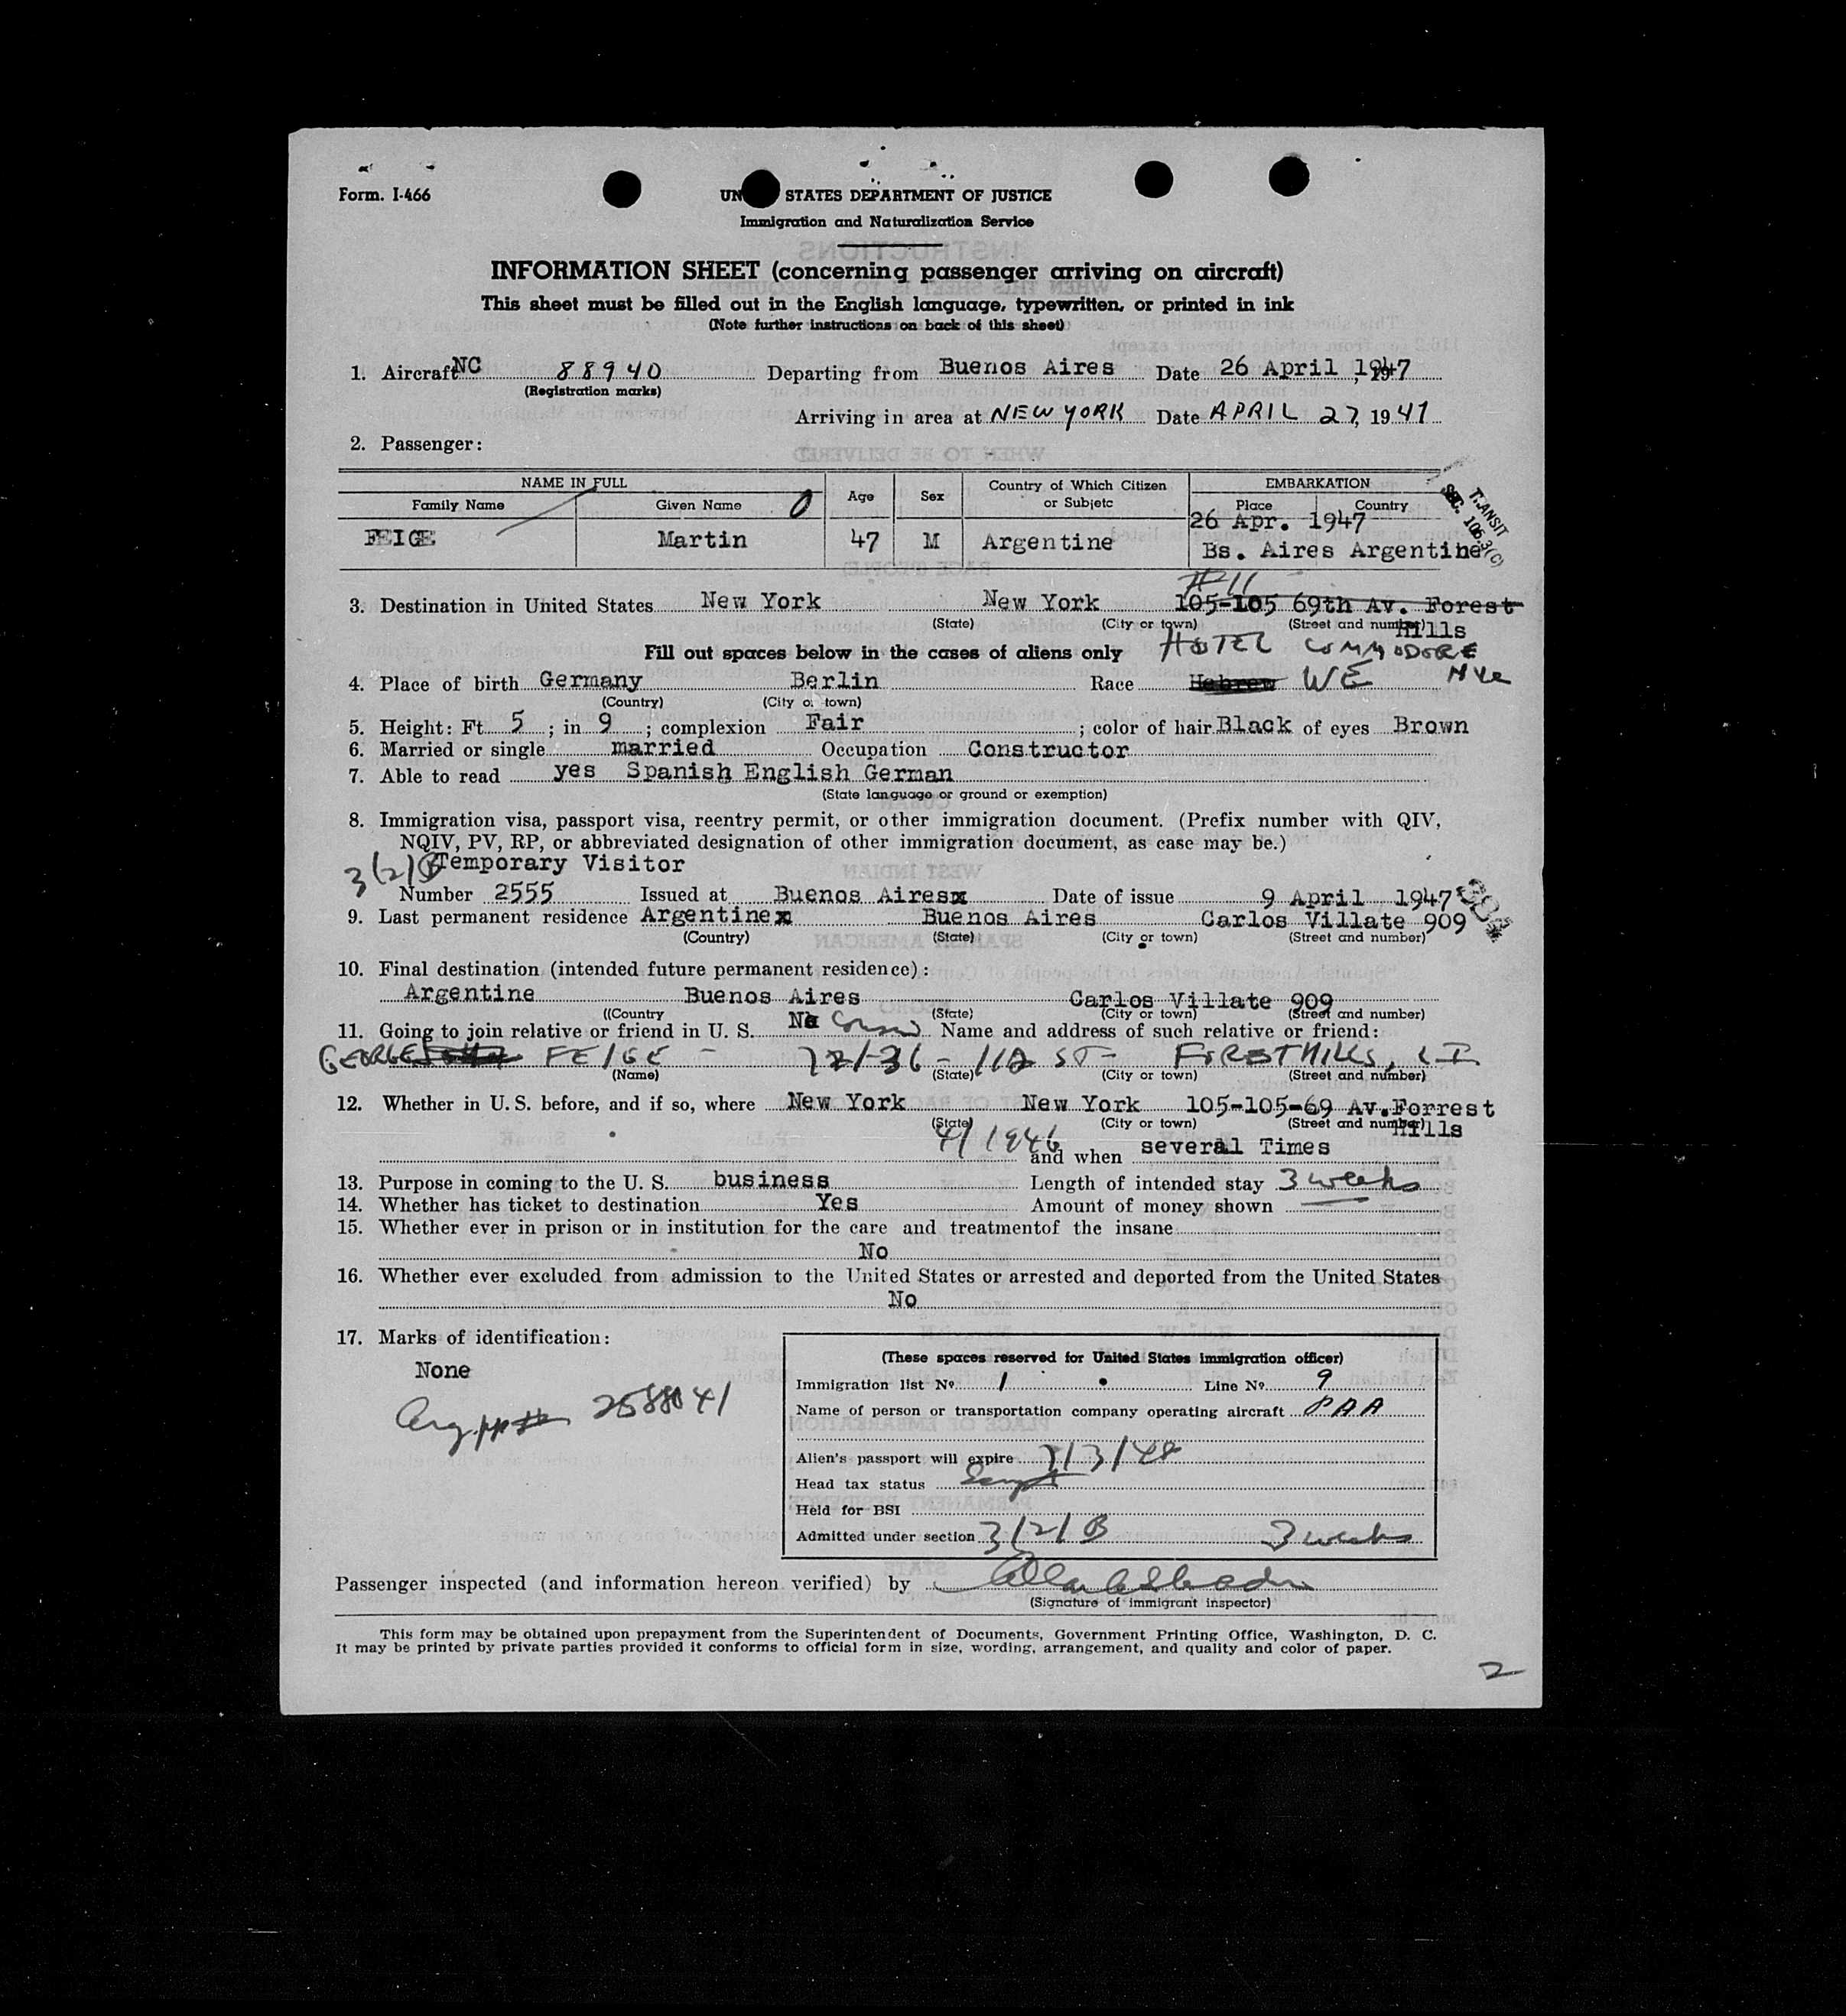 Form. I-466
UN STATES DEPARTMENT OF JUSTICE
Immigration and Naturalization Service
INFORMATION SHEET (concerning passenger arriving on aircraft)
This sheet must be filled out in the English language, typewritten, or printed in ink
(Note further instructions on back of this sheet)
1. Aircraft NC 88940 Departing from Buenos Aires Date 26 April 1947
(Registration marks)
Arriving in area at NEW YORK Date APRIL 27, 1947
2. Passenger:
NAME IN FULL Age Sex Country of Which Citizen or Subjetc EMBARKATION
Family Name Given Name 0 Place Country
26 Apr. 1947
FEIGE Martin 47 M Argentine Bs. Aires Argentine
TRANSIT
SEC. 106.3(c)
#11
3. Destination in United States New York New York 105-105 69th Av. Forest
(State) (City or town) (Street and number) Hills
Fill out spaces below in the cases of aliens only HOTEL COMMODORE
NYC
4. Place of birth Germany Berlin Race Hebrew WE
(Country) (City or town)
5. Height: Ft 5 ; in 9 ; complexion Fair ; color of hair Black of eyes Brown
6. Married or single married Occupation Constructor
7. Able to read yes Spanish English German
(State language or ground or exemption)
8. Immigration visa, passport visa, reentry permit, or other immigration document. (Prefix number with QIV,
NQIV, PV, RP, or abbreviated designation of other immigration document, as case may be.)
3(2)B Temporary Visitor
Number 2555 Issued at Buenos Airesx Date of issue 9 April 1947
9. Last permanent residence Argentinex Buenos Aires Carlos Villate 909
(Country) (State) (City or town) (Street and number)
10. Final destination (intended future permanent residence):
Argentine Buenos Aires Carlos Villate 909
((Country (State) (City or town) (Street and number)
11. Going to join relative or friend in U. S. No Cousin Name and address of such relative or friend:
GEORGE FEIGE - 72/-36 - 112 ST - FOREST HILLS, L I.
(Name) (State) (City or town) (Street and number)
12. Whether in U. S. before, and if so, where New York New York 105-105-69 Av.Forrest
(State) (City or town) (Street and number) Hills
4/1946 and when several Times
13. Purpose in coming to the U. S. business Length of intended stay 3 weeks
14. Whether has ticket to destination Yes Amount of money shown
15. Whether ever in prison or in institution for the care and treatmentof the insane
No
16. Whether ever excluded from admission to the United States or arrested and deported from the United States
No
17. Marks of identification:
None
Arg. pp # 2588041
(These spaces reserved for United States immigration officer)
Immigration list No. 1 Line No. 9
Name of person or transportation company operating aircraft PAA
Alien's passport will expire 7/3/48
Head tax status
Held for BSI
Admitted under section 3/2/B 3 weeks
Passenger inspected (and information hereon verified) by
(Signature of immigrant inspector)
This form may be obtained upon prepayment from the Superintendent of Documents, Government Printing Office, Washington, D. C.
It may be printed by private parties provided it conforms to official form in size, wording, arrangement, and quality and color of paper.
2